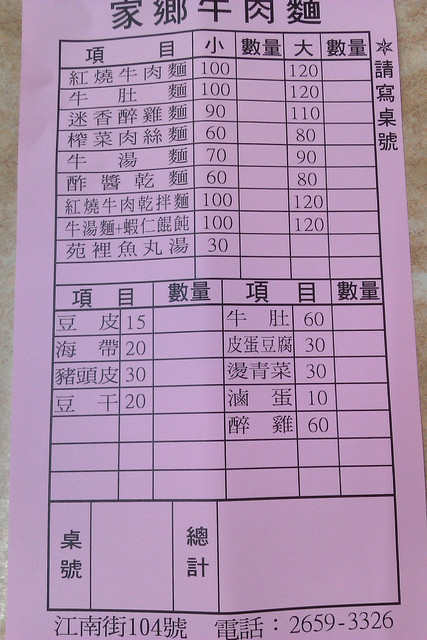 家鄉牛肉麵
項目 小 數量 大 數量
紅燒牛肉麵 100 120
牛肚麵 100 120
迷香醉雞麵 90 110
榨菜肉絲麵 60 80
牛湯麵 70 90
酢醬乾麵 60 80
紅燒牛肉乾拌麵 100 120
牛湯麵+蝦仁餛飩 100 120
苑裡魚丸湯 30
※請寫桌號
項目 數量 項目 數量
豆皮 15 牛肚 60
海帶 20 皮蛋豆腐 30
豬頭皮 30 燙青菜 30
豆干 20 滷蛋 10
醉雞 60
桌號 總計
江南街104號 電話：2659-3326